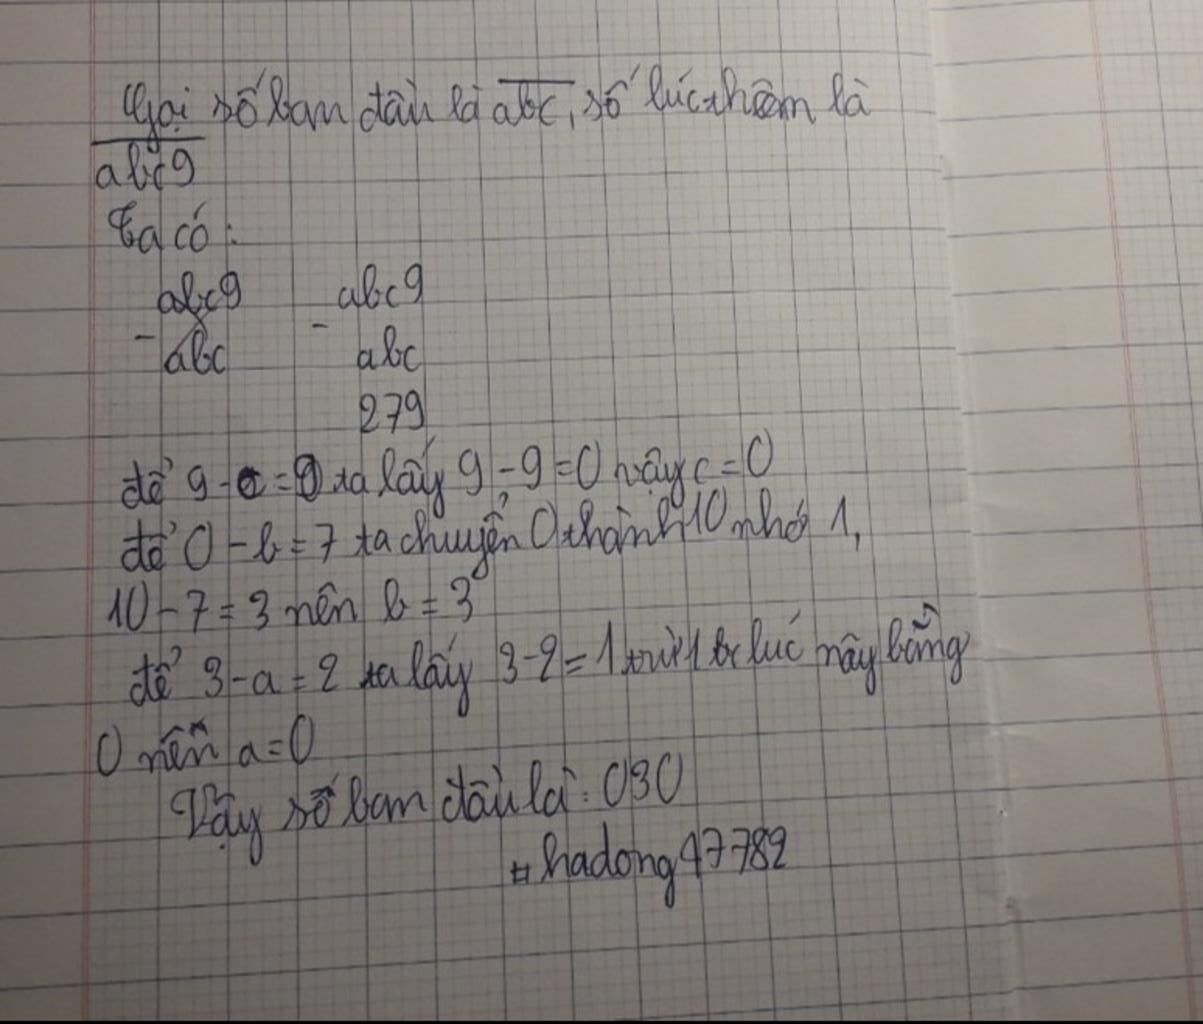 Gọi số ban đầu là abc, số lúc thêm là
abc9
Ta có:
abc9 abc9
- abc - abc
279
để 9-c=9 ta lấy 9-9=0 vậy c=0
để 0-b=7 ta chuyển 0 thành 10 nhớ 1,
10-7=3 nên b=3
để 3-a=2 ta lấy 3-2=1 trừ 1 lúc này bẵng
0 nên a=0
Vậy số ban đầu là: 030
#hadong47782